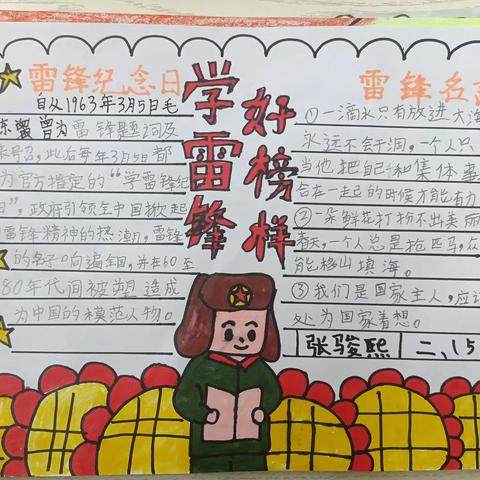 雷锋纪念日
自从1963年3月5日毛
东曾为雷锋题词及
来号召,此后每年3月5日都
为官方指定的“学雷锋纪
日”,政府引领全中国掀起
雷锋精神的热潮,雷锋
的名子向遍全国,并在60至
80年代间被塑造成
为中国的模范人物。
学雷锋
好榜样
雷锋名言
①一滴水只有放进大海
永远不会干涸,一个人只
当他把自己和集体事
合在一起的时候才能有力
②一朵鲜花打扮不出美丽
春天,一个人总是抢匹马,众
能移山填海。
③我们是国家主人,应
处为国家着想。
张骏熙 二、15